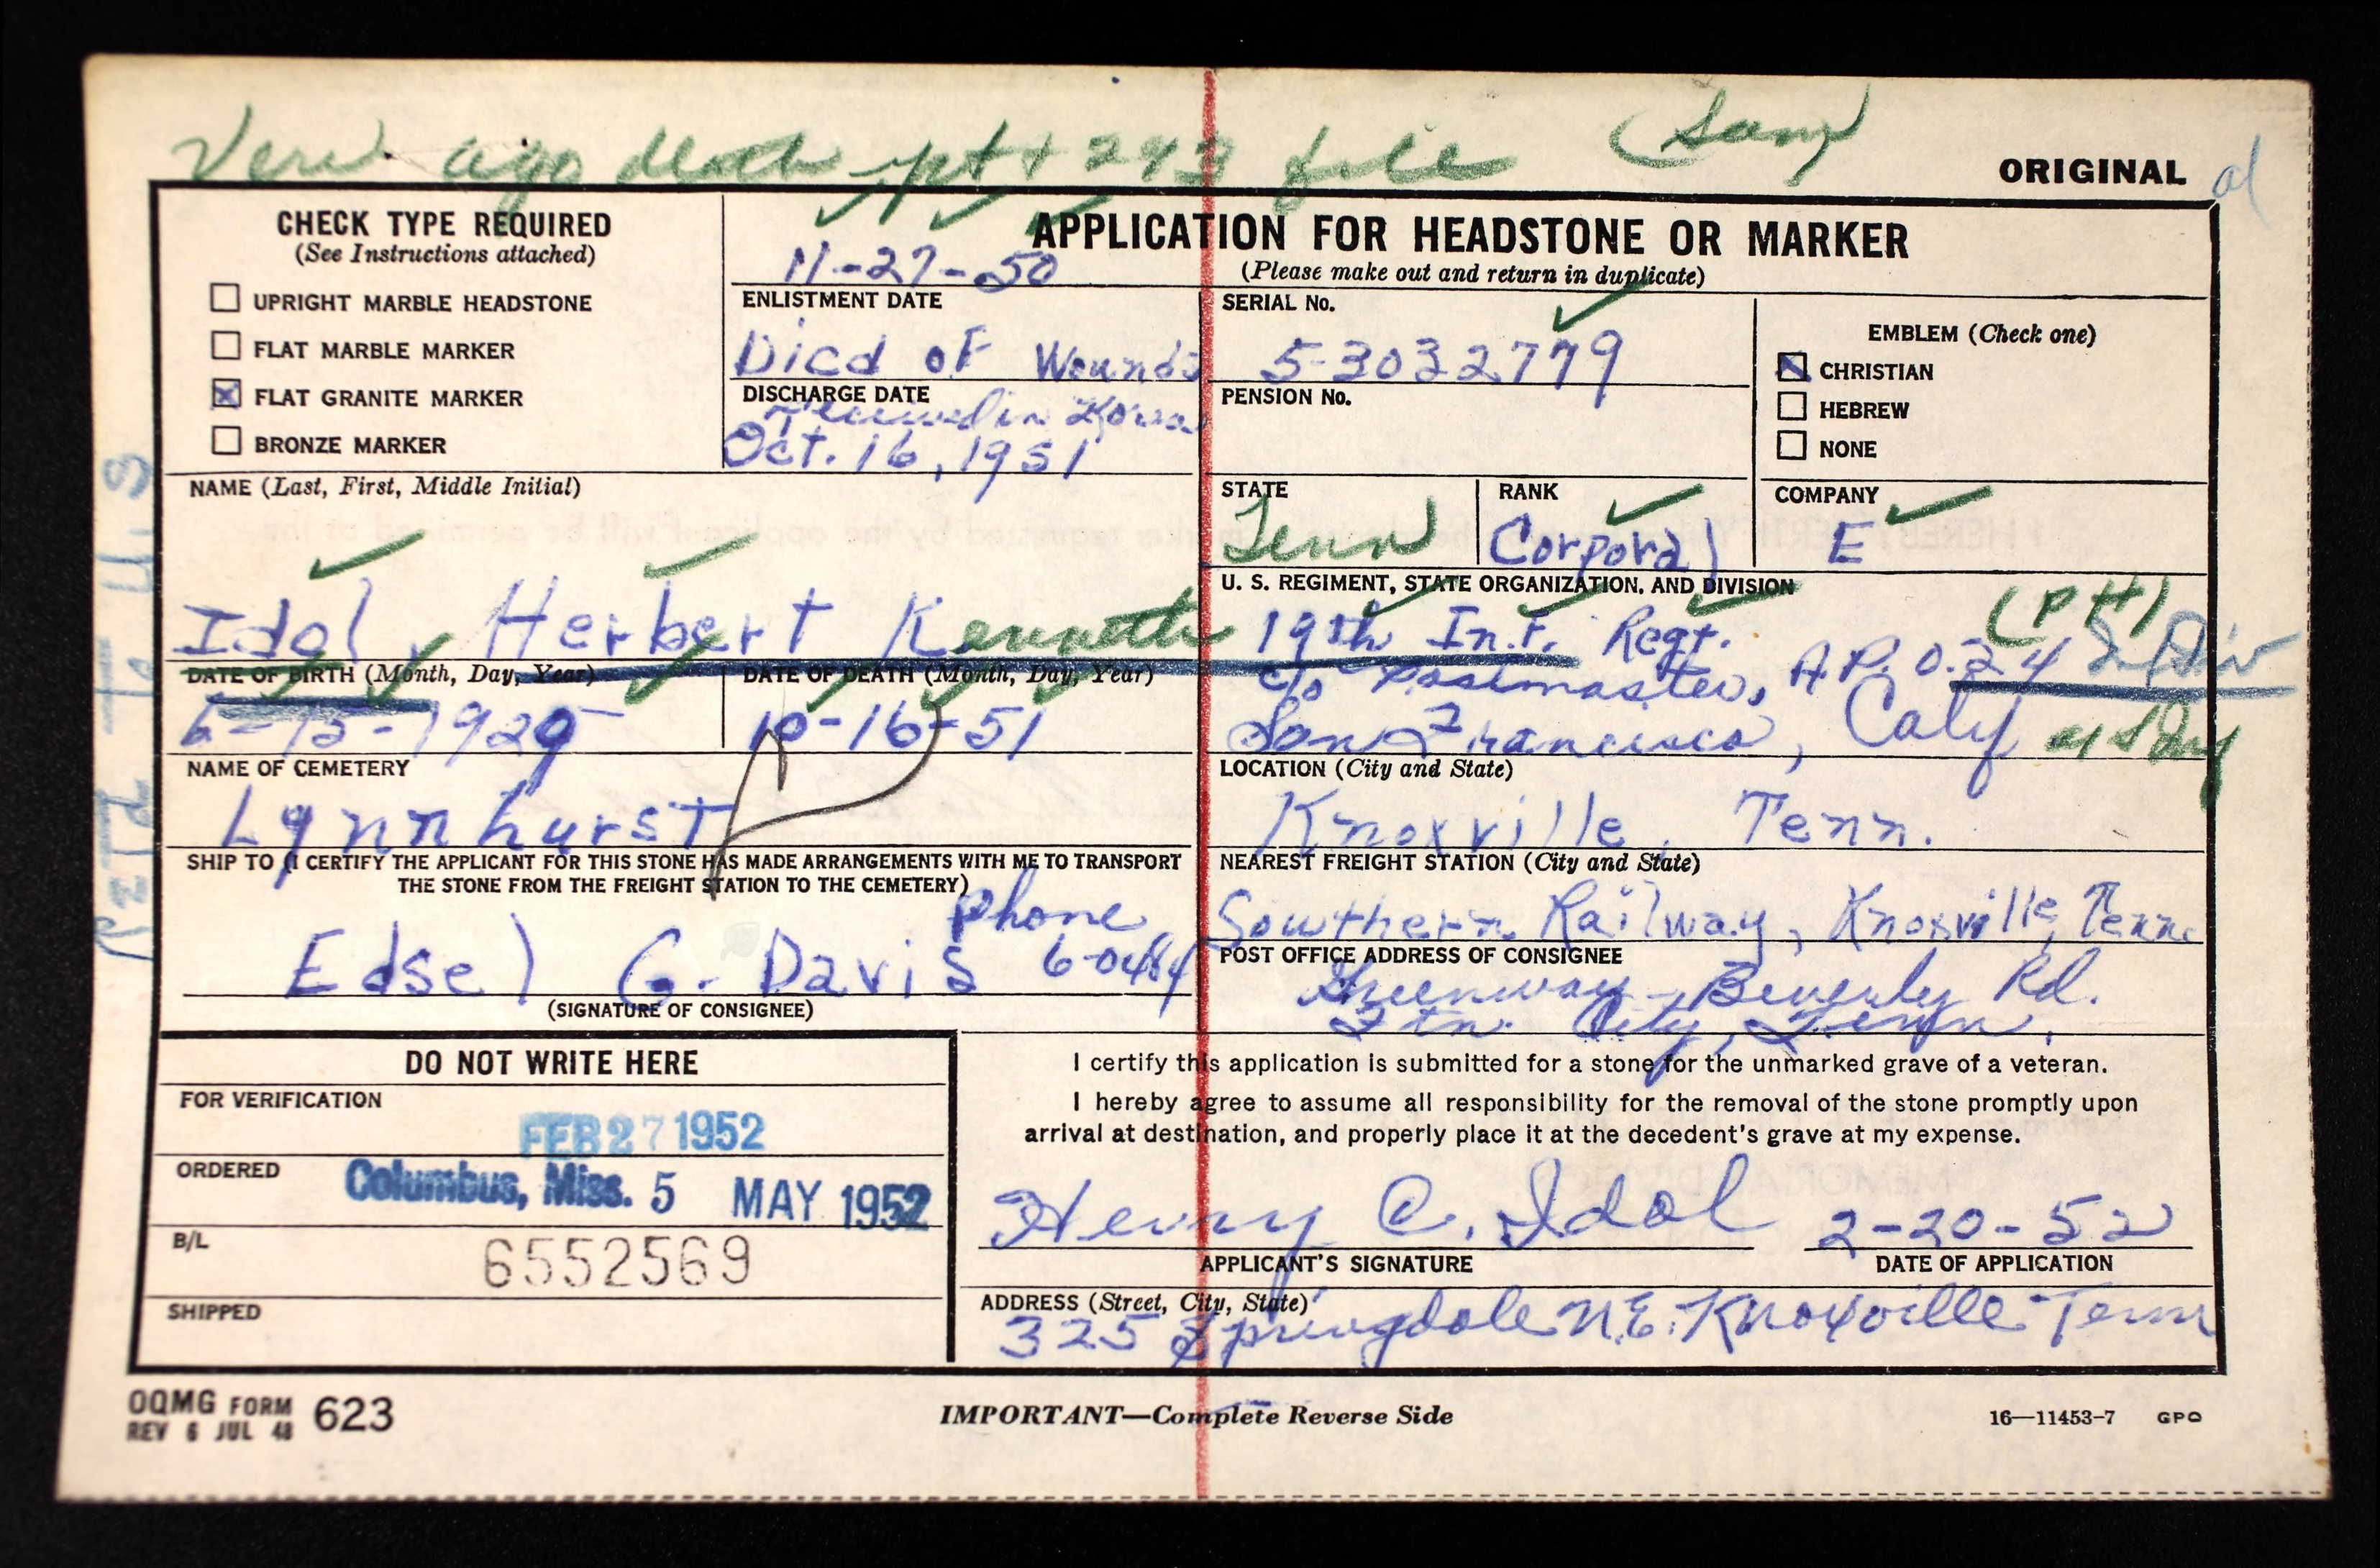 Veri ago death rpt + 293 file (Sam)
ORIGINAL
CHECK TYPE REQUIRED
(See Instructions attached)
UPRIGHT MARBLE HEADSTONE
FLAT MARBLE MARKER
FLAT GRANITE MARKER
BRONZE MARKER
APPLICATION FOR HEADSTONE OR MARKER
(Please make out and return in duplicate)
11-27-50
ENLISTMENT DATE
Died of Wounds
DISCHARGE DATE
in Korea
Oct. 16, 1951
SERIAL No.
53032779
PENSION No.
EMBLEM (Check one)
CHRISTIAN
HEBREW
NONE
NAME (Last, First, Middle Initial)
Idol, Herbert Kenneth
STATE
Tenn
RANK
Corporal
COMPANY
E
U. S. REGIMENT, STATE ORGANIZATION, AND DIVISION
19th Inf. Regt. (PH)
c/o Postmaster, A.P.O. 24 Div
San Francisco, Calif
DATE OF BIRTH (Month, Day, Year)
DATE OF DEATH (Month, Day, Year)
10-16-51
NAME OF CEMETERY
Lynnhurst
LOCATION (City and State)
Knoxville, Tenn.
SHIP TO (I CERTIFY THE APPLICANT FOR THIS STONE HAS MADE ARRANGEMENTS WITH ME TO TRANSPORT
THE STONE FROM THE FREIGHT STATION TO THE CEMETERY)
Phone
Edsel G. Davis 6-0484
(SIGNATURE OF CONSIGNEE)
NEAREST FREIGHT STATION (City and State)
Southern Railway, Knoxville, Tenn.
POST OFFICE ADDRESS OF CONSIGNEE
Greenway - Beverly Rd.
Ftn. City, Tenn.
Ret to U S
DO NOT WRITE HERE
FOR VERIFICATION
FEB 27 1952
ORDERED
Columbus, Miss. 5 MAY 1952
B/L
6552569
SHIPPED
I certify this application is submitted for a stone for the unmarked grave of a veteran.
I hereby agree to assume all responsibility for the removal of the stone promptly upon
arrival at destination, and properly place it at the decedent's grave at my expense.
Henry C. Idol 2-20-52
APPLICANT'S SIGNATURE
DATE OF APPLICATION
ADDRESS (Street, City, State)
325 Springdale N.E. Knoxville Tenn
OQMG FORM 623
REV 6 JUL 48
IMPORTANT—Complete Reverse Side
16—11453-7 GPO